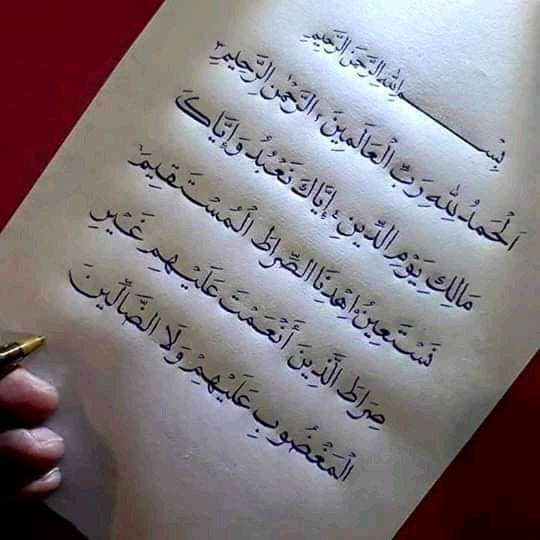 بِسْمِ اللهِ الرَّحْمٰنِ الرَّحِيْمِ
اَلْحَمْدُ لِلّٰهِ رَبِّ الْعَالَمِينَ ١ الرَّحْمٰنِ الرَّحِيْمِ ٢
مَالِكِ يَوْمِ الدِّينِ ٣ إِيَّاكَ نَعْبُدُ وَإِيَّاكَ
نَسْتَعِينُ ٤ اِهْدِنَا الصِّرَاطَ الْمُسْتَقِيمَ
صِرَاطَ الَّذِينَ أَنْعَمْتَ عَلَيْهِمْ غَيْرِ
الْمَغْضُوبِ عَلَيْهِمْ وَلَا الضَّالِّينَ